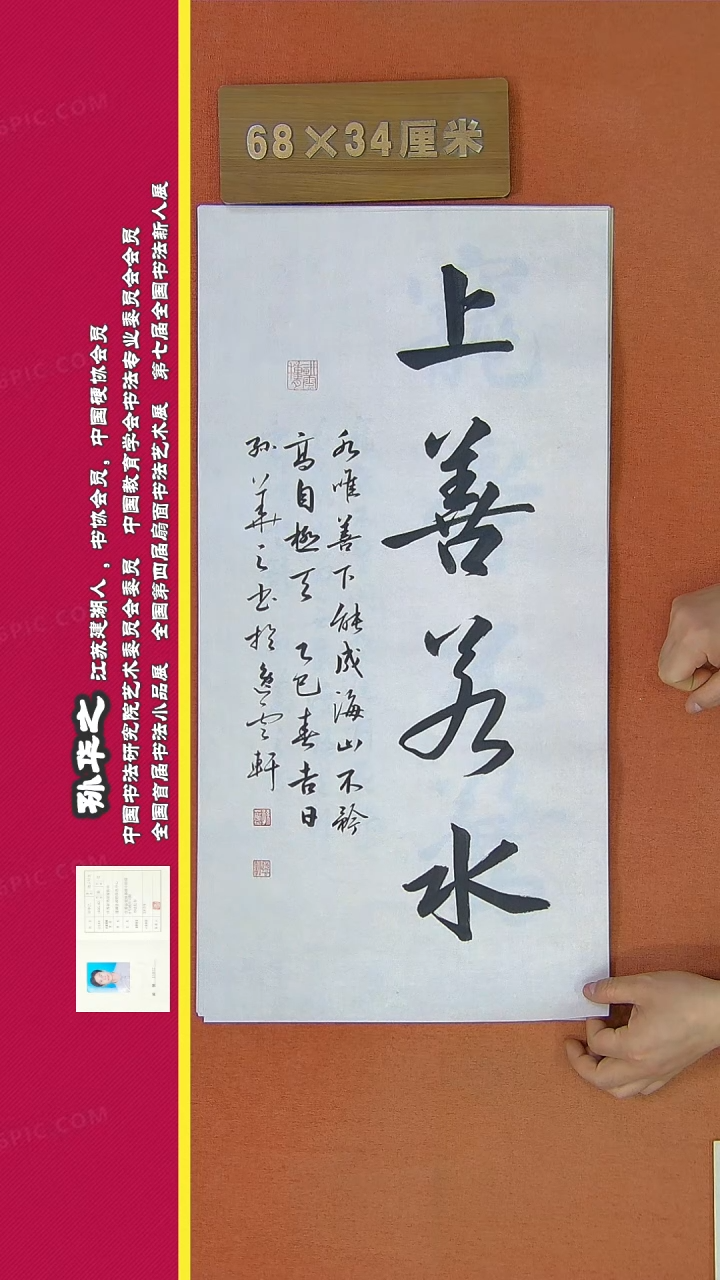 68×34厘米
上善若水
水唯善下能成海山不矜
高自极天 乙巳春吉日
孙华之书於逸云轩
孙华之 江苏建湖人，书协会员，中国硬协会员
中国书法研究院艺术委员会委员 中国教育学会书法专业委员会会员
全国首届书法小品展 全国第四届扇面书法艺术展 第七届全国书法新人展